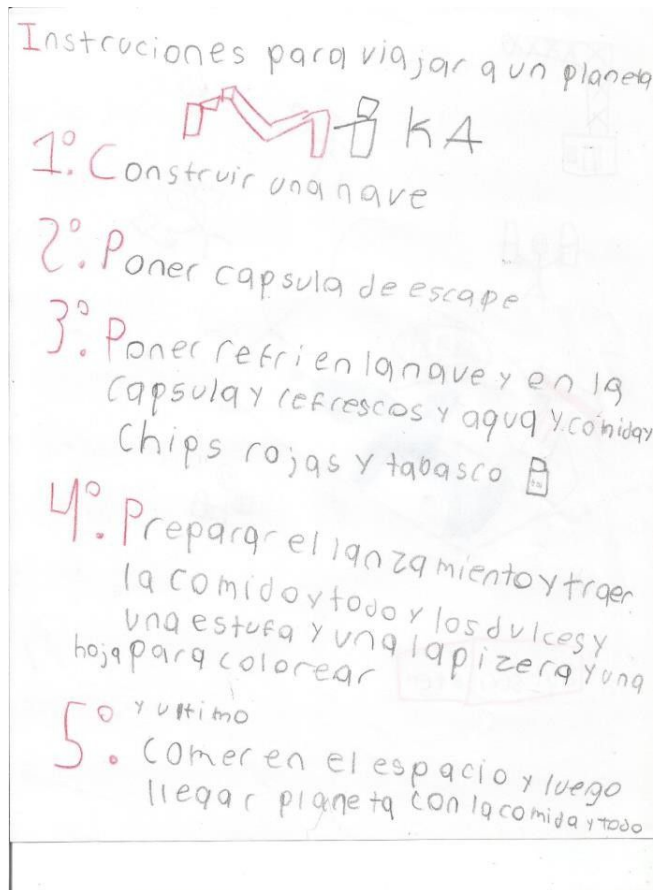 Instruciones para viajar a un planeta
KA
1º. Construir una nave
2º. Poner capsula de escape
3º. Poner refri en la nave y en la
capsula y refrescos y agua y comida y
Chips rojas y tabasco
4º. Preparar el lanzamiento y traer
la comido y todo y los dulces y
una estufa y una lapizera y una
hoja para colorear
5º. y ultimo
comer en el espacio y luego
llegar planeta con la comida y todo